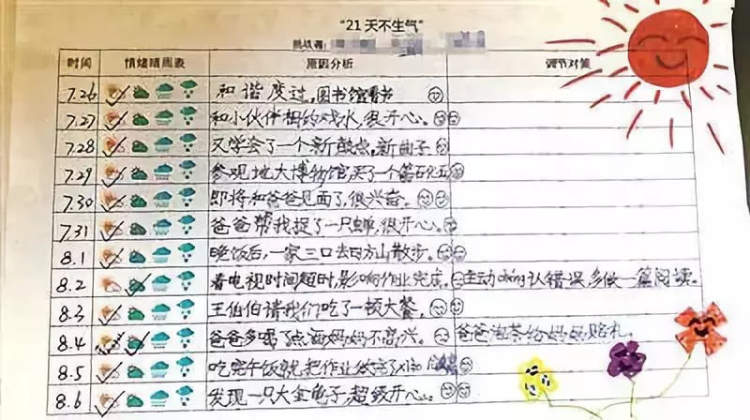 "21天不生气"
挑战者:
时间 情绪晴雨表 原因分析 调节对策
7.26 和谐度过,图书馆看书
7.27 和小伙伴相约戏水,很开心。
7.28 又学会了一个新鼓点,新曲子
7.29 参观地大博物馆,买了一个
7.30 即将和爸爸见面了,很兴奋。
7.31 爸爸帮我捉了一只蝉,很开心。
8.1 晚饭后,一家三口去方山散步。
8.2 看电视时间超时,影响作业完成。主动认错误,多做一篇阅读。
8.3 王伯伯请我们吃了一顿大餐,
8.4 爸爸多喝了点酒妈妈不高兴。 爸爸泡茶给妈妈赔礼。
8.5 吃完午饭就把作业做完了
8.6 发现一只大金龟子,超级开心。